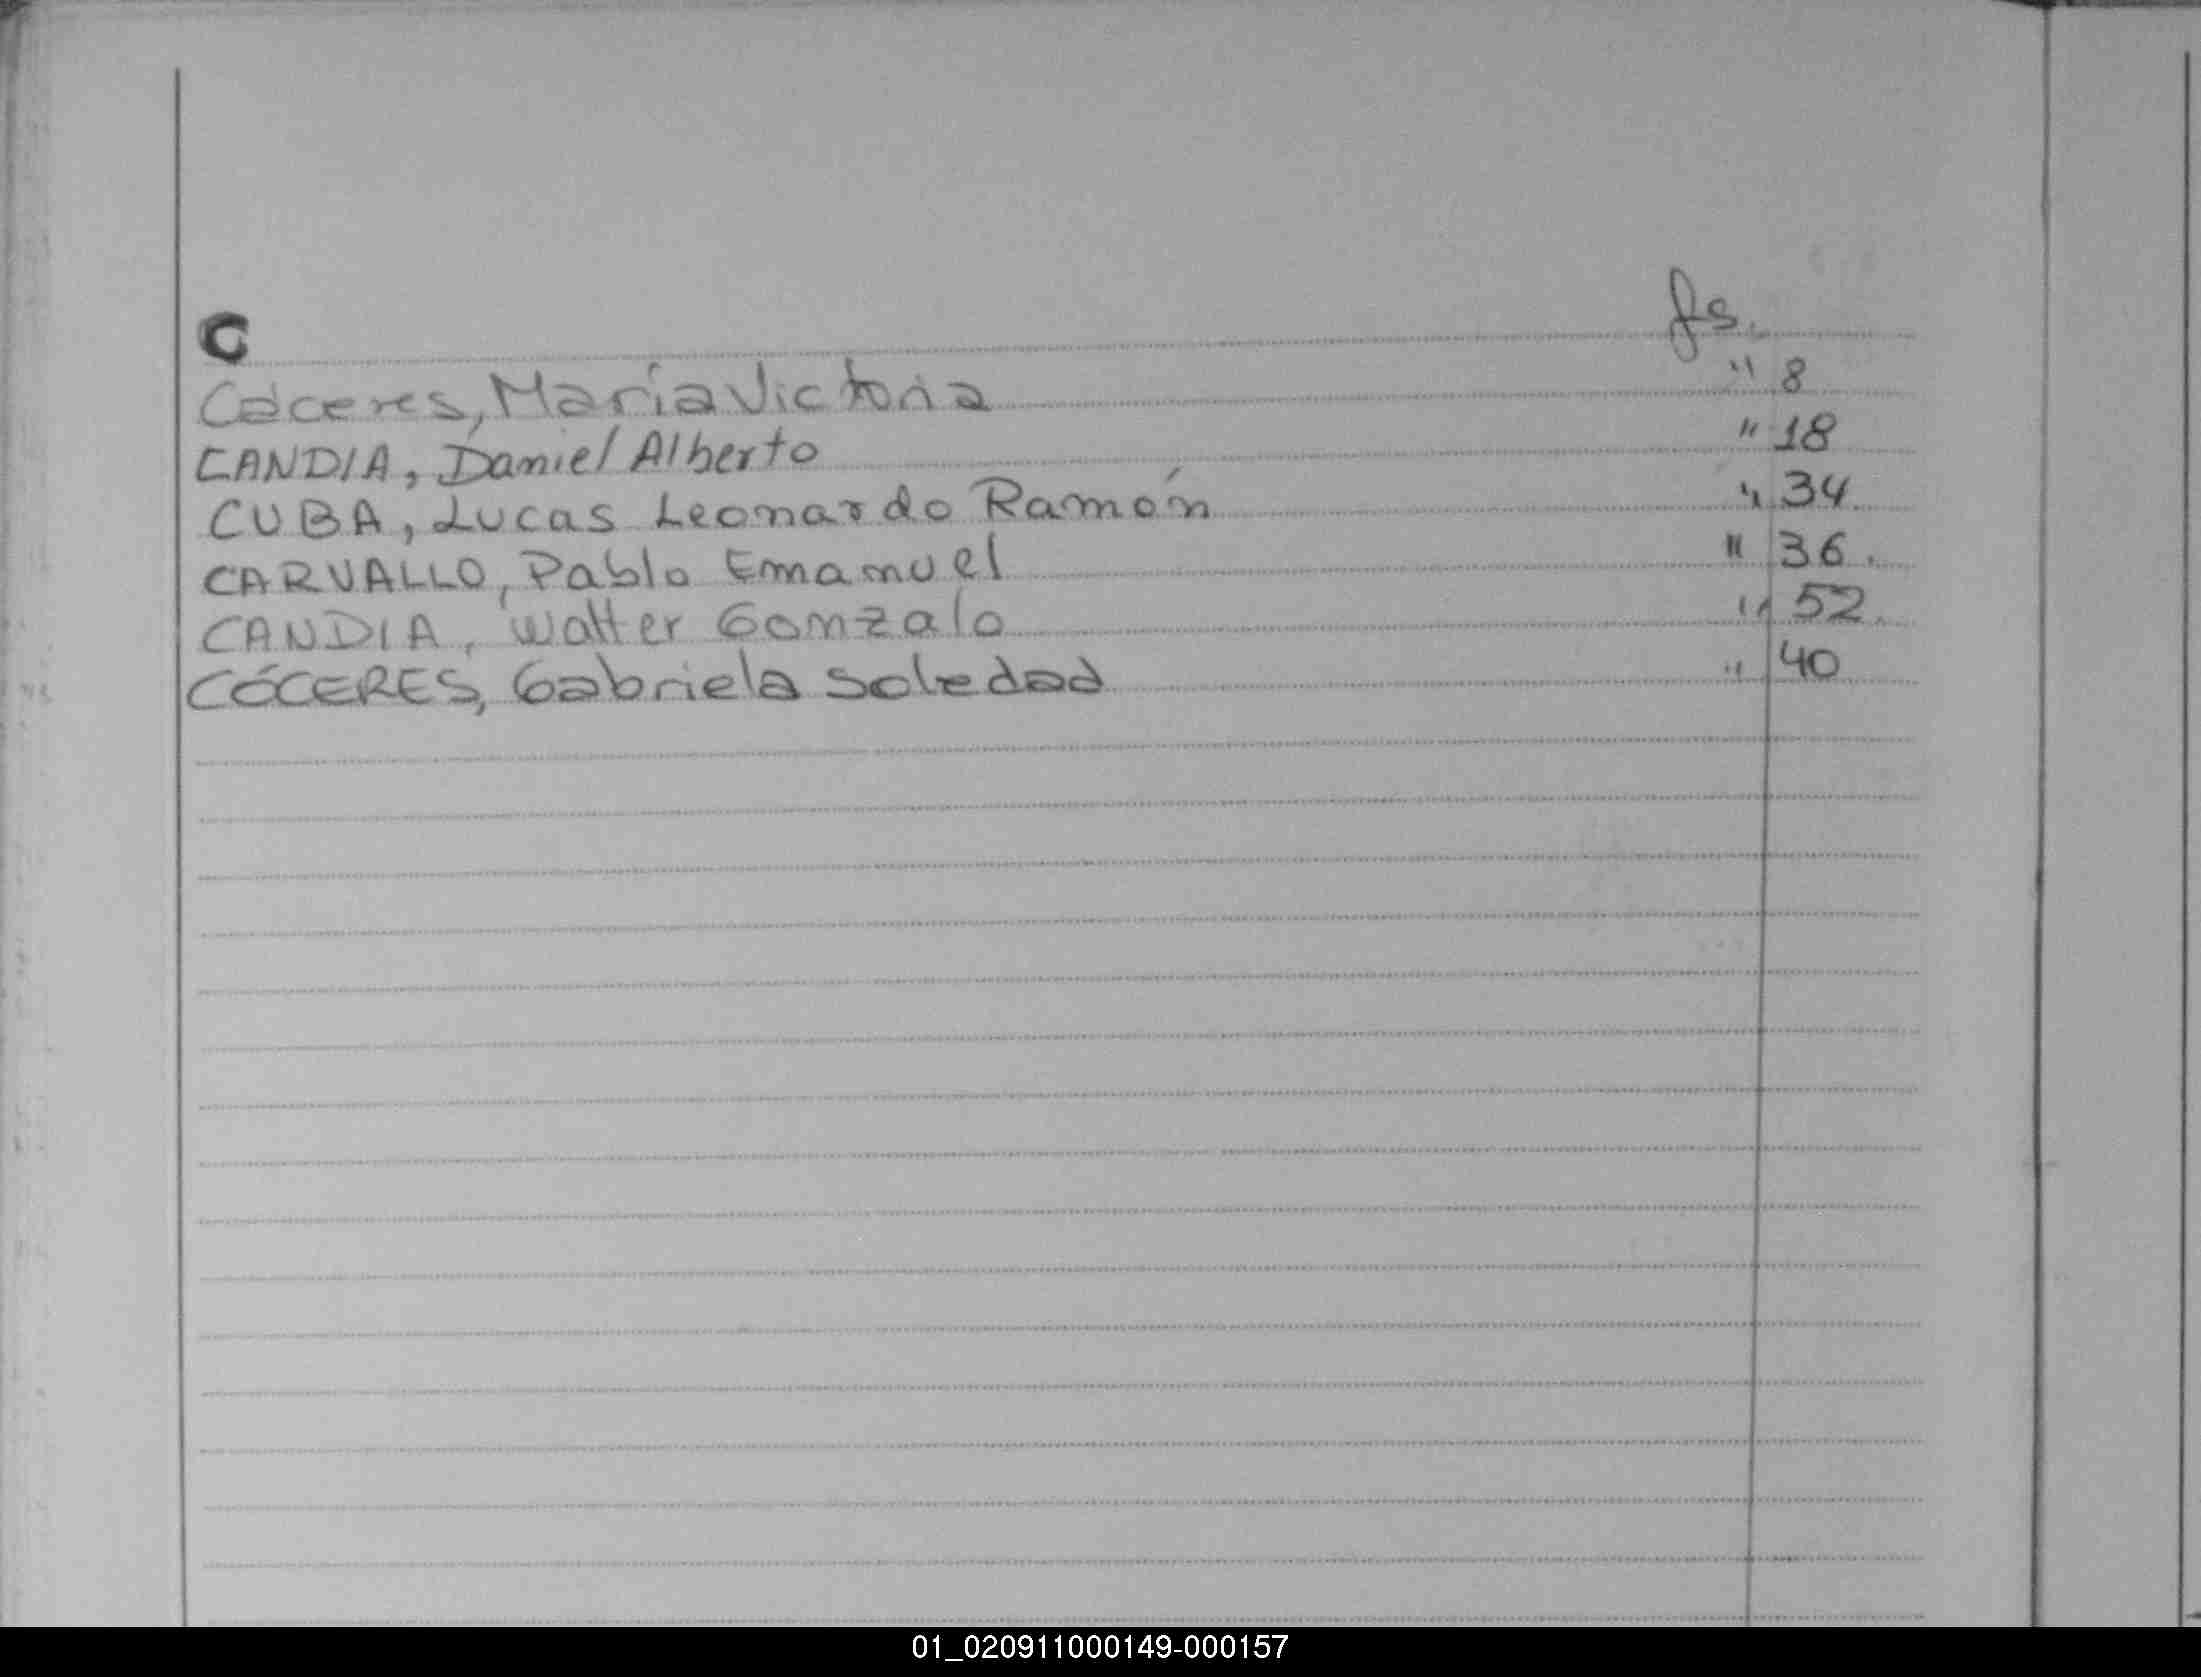 C fs.
Cáceres, María Victoria " 8
CANDIA, Daniel Alberto " 18
CUBA, Lucas Leonardo Ramón " 34
CARVALLO, Pablo Emanuel " 36.
CANDIA, Walter Gonzalo " 52.
CÓCERES, Gabriela Soledad " 40
01_020911000149-000157